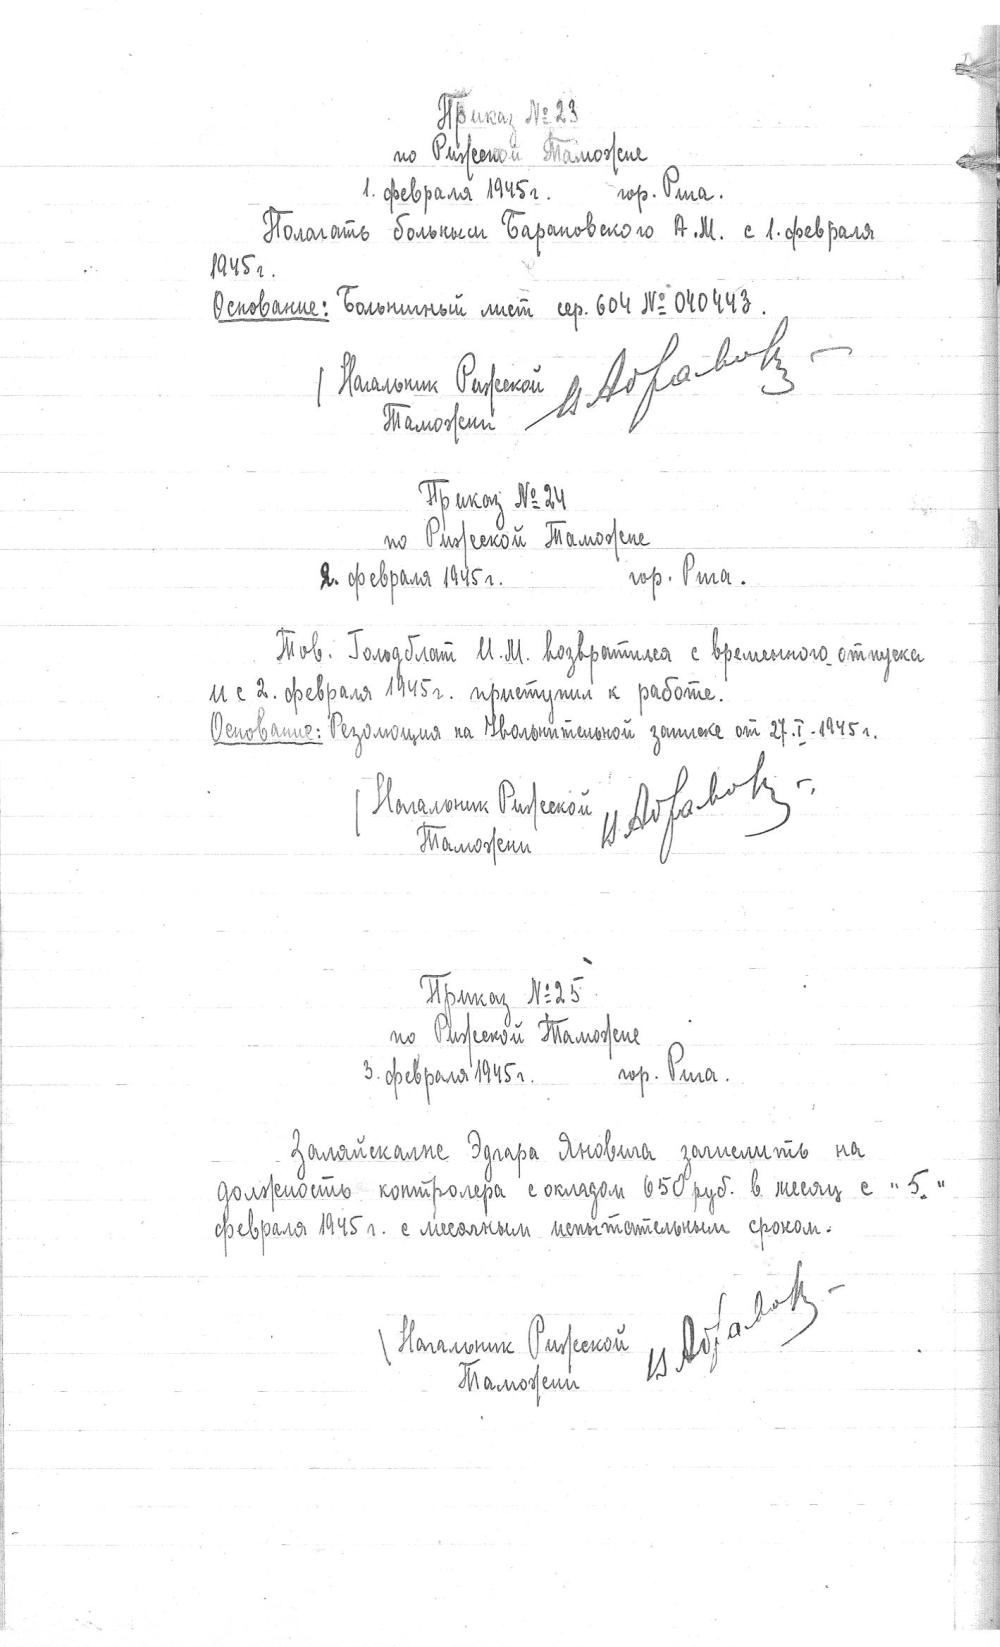 Приказ №23
по Рижской Таможне
1. февраля 1945г. гор. Рига.
Полагать больным Барановского А.М. с 1. февраля
1945г.
Основание: Больничный лист сер. 604 № 040443.
Начальник Рижской
Таможни
Приказ №24
по Рижской Таможне
2. февраля 1945г. гор. Рига.
Тов. Гольдблат И.М. возвратился с временного отпуска
и с 2. февраля 1945г. приступил к работе.
Основание: Резолюция на Увольнительной записке от 27.I.1945г.
Начальник Рижской
Таможни
Приказ №25
по Рижской Таможне
3. февраля 1945г. гор. Рига.
Заляйскалнс Эдгара Яновича зачислить на
должность контролера с окладом 650 руб. в месяц с "5."
февраля 1945г. с месячным испытательным сроком.
Начальник Рижской
Таможни